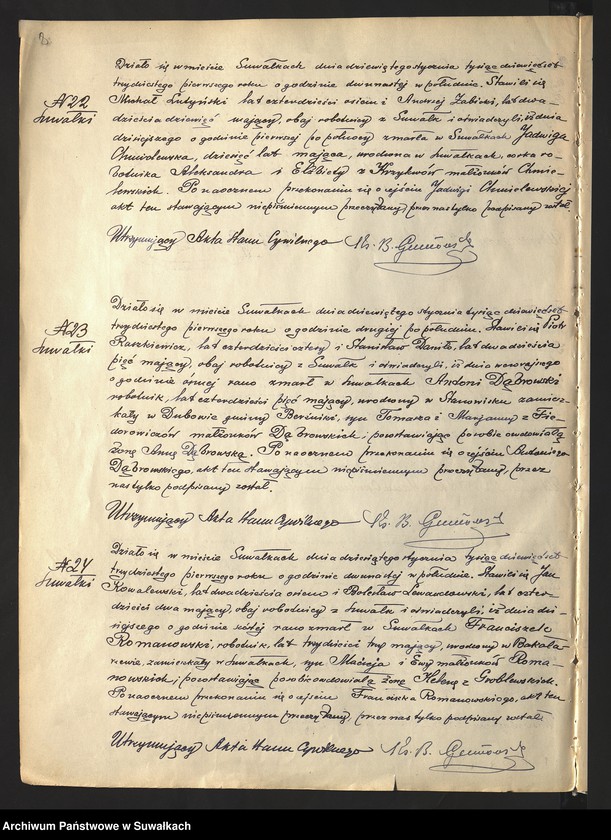 Działo się w mieście Suwałkach dnia dziewiątego stycznia tysiąc dziewięćset
trzydziestego pierwszego roku o godzinie dwunastej w południe. Stawili się
N 22
Suwałki
Michał Łutyński lat czterdzieści osiem i Andrzej Żabicki, lat dwa-
dzieścia dziewięć mający, obaj robotnicy z Suwałk i oświadczyli, iż dnia
dzisiejszego o godzinie pierwszej po północy zmarła w Suwałkach Jadwiga
Chmielewska, dziesięć lat mająca, urodzona w Suwałkach, córka ro-
botnika Aleksandra i Elżbiety z małżonków Chmie-
lewskich. Po naocznem przekonaniu się o zejściu Jadwigi Chmielewskiej
akt ten stawającym niepiśmiennym przeczytany, przez nas tylko podpisany został.
Utrzymujący Akta Stanu Cywilnego Ks. B.
N 23
Suwałki
Działo się w mieście Suwałkach dnia dziewiątego stycznia tysiąc dziewięćset
trzydziestego pierwszego roku o godzinie drugiej po południu. Stawili się Piotr
Raszkiewicz, lat czterdzieści cztery i Stanisław Daniło, lat dwadzieścia
pięć mający, obaj robotnicy z Suwałk i oświadczyli, iż dnia wczorajszego
o godzinie ósmej rano zmarł w Suwałkach Antoni Dąbrowski
robotnik, lat czterdzieści pięć mający, urodzony w Stanowisku zamiesz-
kały w Dubowie gminy syn Tomasza i Marjanny z Fie-
dorowiczów małżonków Dąbrowskich; pozostawiając po sobie owdowiałą
żonę Annę Dąbrowską. Po naocznem przekonaniu się o zejściu Antoniego
Dąbrowskiego, akt ten stawającym niepiśmiennym przeczytany, przez
nas tylko podpisany został.
Utrzymujący Akta Stanu Cywilnego Ks. B.
N 24
Suwałki
Działo się w mieście Suwałkach dnia dziesiątego stycznia tysiąc dziewięćset
trzydziestego pierwszego roku o godzinie dwunastej w południe. Stawili się Jan
Kowalewski, lat dwadzieścia osiem i Bolesław lat czter-
dzieści dwa mający, obaj robotnicy z Suwałk i oświadczyli, iż dnia dzi-
siejszego o godzinie szóstej rano zmarł w Suwałkach Franciszek
Romanowski, robotnik, lat trzydzieści trzy mający, urodzony w Bakała-
rzewie, zamieszkały w Suwałkach, syn Macieja i Ewy małżonków Roma-
nowskich; pozostawiając po sobie owdowiałą żonę Helenę z Groblewskich.
Po naocznem przekonaniu się o zejściu Franciszka Romanowskiego, akt ten
stawającym niepiśmiennym przeczytany, przez nas tylko podpisany został.
Utrzymujący Akta Stanu Cywilnego Ks. B.
Archiwum Państwowe w Suwałkach